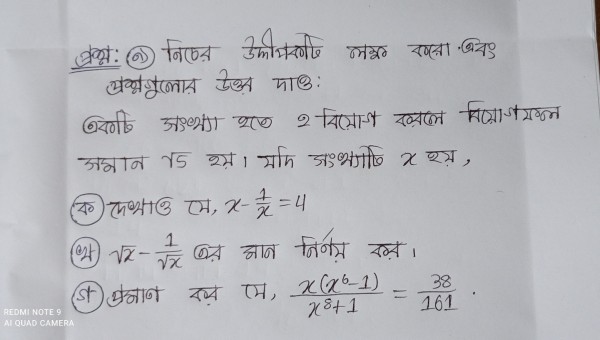 প্রশ্ন: ৯) নিচের উদ্দীপকটি লক্ষ করো এবং
প্রশ্নগুলোর উত্তর দাও:
একটি সংখ্যা হতে 2 বিয়োগ করলে বিয়োগফল
সমান √5 হয়। যদি সংখ্যাটি x হয়,
ক) দেখাও যে, x - 1/x = 4
খ) √x - 1/√x এর মান নির্ণয় কর।
গ) প্রমাণ কর যে, x(x⁶-1)/x⁸+1 = 38/161 .
REDMI NOTE 9
AI QUAD CAMERA